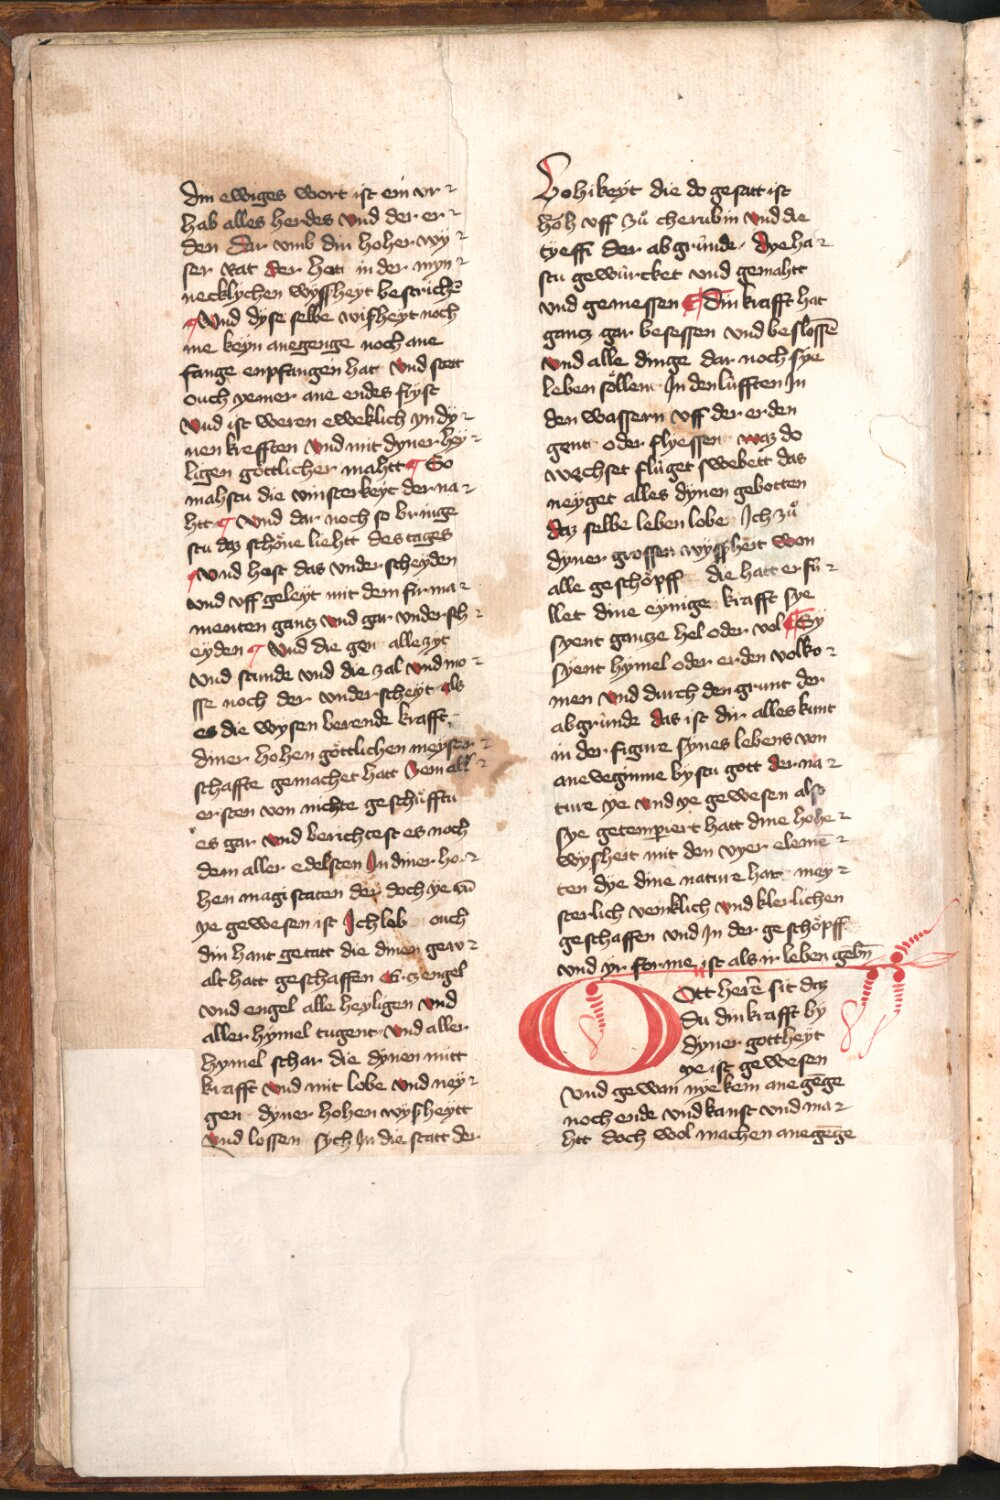 Din ewiges wort ist ein vr-
hab alles herdes vnd der er-
den Dar vmb din hoher wy-
ser Rat der hett in der myn-
necklychen wyssheyt bestrichē
¶ Vnd dyse selbe wisheyt noch
nie keyn anegenge noch ane
fange enpfangen hat Vnd stett
ouch yemer ane endes fryst
Vnd ist weren eweklich yn dy-
nen krefften Vnd mit dyner hey-
ligen göttlicher mahtt ¶ So
mahstu die vinsterkeyt der na-
htt ¶ Vnd dar noch so bringe
stu daz schöne liehtt des tages
¶ Vnd hest das vnder scheyden
vnd vff geleyt mit dem firma-
menten gantz Vnd gar vndersch-
eyden ¶ Vnd die gen alle zyt
vnd stunde vnd die zal Vnd mo-
sse noch der vnderscheyt als
es die wysen berende krafft
diner hohen göttlichen meyster-
schaffte gemachet hatt Zem all-
ersten von nichte geschüfftu
es gar Vnd berichtest es noch
dem aller edelsten In diner ho-
hen magistaten der doch ye vn̄
ye gewesen ist Ich lob ouch
din hant getatt die dinen gew-
alt hatt geschaffen Ertzengel
vnd engel alle heyligen Vnd
aller hymel tugent Vnd aller
hymel schar die dynen mitt
krafft Vnd mit lobe Vnd ney-
gen dyner hohen wyssheytt
Vnd lossen sych In die statt der
Hohikeyt die do gesatt ist
hoh vff zů cherubin Vnd die
tyeffi der abgründe Dye ha-
stu gewürcket vnd gemahtt
vnd gemessen ¶ Din krafft hat
gantz gar besessen vnd beslossē
Vnd alle dinge dar noch sye
leben söllent In den lüfften In
den wassern vff der erden
gent oder flyessen waz do
wechset flüget swebett das
neyget alles dynen gebotten
daz selbe leben lobe Ich zů
dyner grossen wyssheit Von
alle geschöpff die hatt erfü-
llet dine eynige krafft sye
syent gantze hel oder vol ¶ Sy
syent hymel oder erden volko-
men Vnd durch den grunt der
abgründe das ist dir alles kunt
in der figure synes lebens von
anevegninne bystu gott der na-
ture ye Vnd ye gewesen also
sye getemperiert hatt dine hohe-
wysheit mit den vyer elemē-
ten dye dine nature hat mey-
sterlich reinklich Vnd klerlichen
geschaffen vnd In der geschöpff
vnd yr forme ist als ir leben gebn̄
Gott herre sit daz
du din krafft by
dyner gottheyt
ye ist gewesen
vnd gewan nye kein anegēge
noch ende vnd kanst vnd ma-
htt doch wol machen anegēge